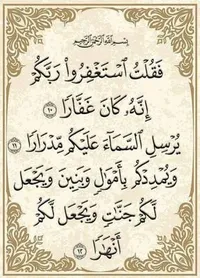 بِسْمِ اللَّهِ الرَّحْمَٰنِ الرَّحِيمِ
فَقُلْتُ ٱسْتَغْفِرُوا۟ رَبَّكُمْ
إِنَّهُۥ كَانَ غَفَّارًا ١٠
يُرْسِلِ ٱلسَّمَآءَ عَلَيْكُم مِّدْرَارًا ١١
وَيُمْدِدْكُم بِأَمْوَٰلٍ وَبَنِينَ وَيَجْعَل
لَّكُمْ جَنَّٰتٍ وَيَجْعَل لَّكُمْ
أَنْهَٰرًا ١٢